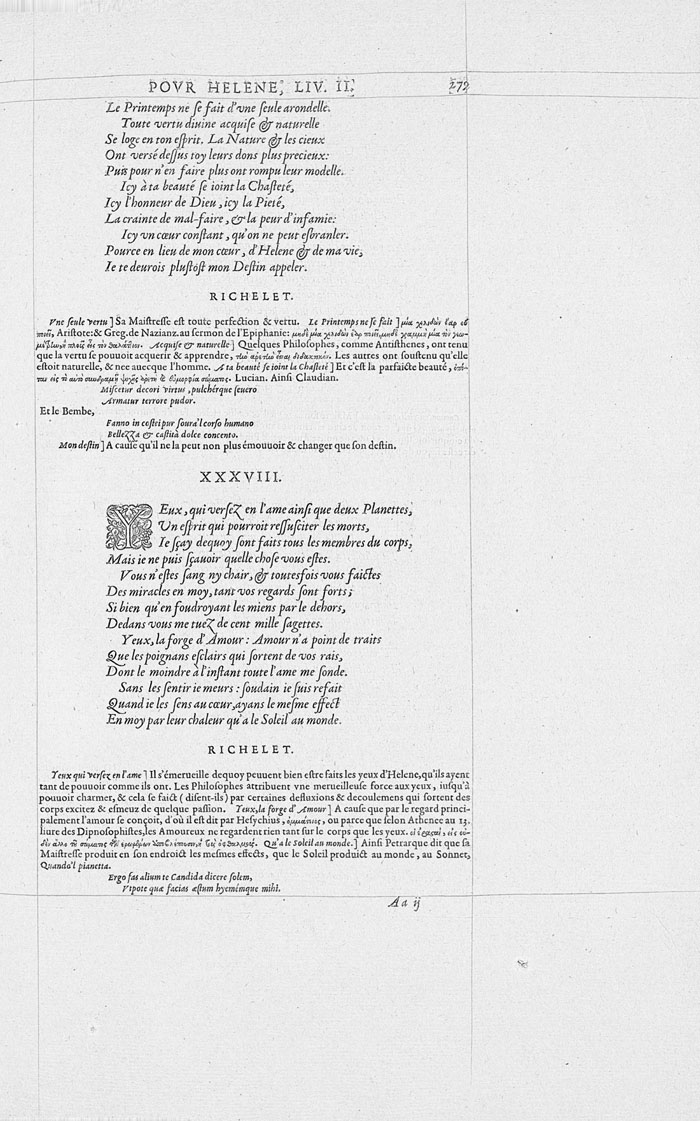 POVR HELENE, LIV. II. 279
Le Printemps ne se fait d'vne seule arondelle.
Toute vertu diuine acquise & naturelle
Se loge en ton esprit. La Nature & les cieux
Ont versé dessus toy leurs dons plus precieux:
Puis pour n'en faire plus ont rompu leur modelle.
Icy à ta beauté se ioint la Chasteté,
Icy l'honneur de Dieu, icy la Pieté,
La crainte de mal-faire, & la peur d'infamie:
Icy vn cœur constant, qu'on ne peut esbranler.
Pource en lieu de mon cœur, d'Helene & de ma vie,
Ie te deurois plustost mon Destin appeler.
RICHELET.
Vne seule vertu] Sa Maistresse est toute perfection & vertu. Le Printemps ne se fait] μία χελιδὼν ἔαρ οὐ
ποιεῖ, Aristote: & Greg. de Nazianz. au sermon de l'Epiphanie:
Acquise & naturelle] Quelques Philosophes, comme Antisthenes, ont tenu
que la vertu se pouuoit acquerir & apprendre, Les autres ont soustenu qu'elle
estoit naturelle, & nee auecque l'homme. A ta beauté se ioint la Chasteté] Et c'est la parfaicte beauté,
Lucian. Ainsi Claudian.
Miscetur decori virtus, pulchérque seuero
Armatur terrore pudor.
Et le Bembe,
Fanno in costei pur soura'l corso humano
Bellezza & castità dolce concento.
Mon destin] A cause qu'il ne la peut non plus émouuoir & changer que son destin.
XXXVIII.
YEux, qui versez en l'ame ainsi que deux Planettes,
Vn esprit qui pourroit ressusciter les morts,
Ie sçay dequoy sont faits tous les membres du corps,
Mais ie ne puis sçauoir quelle chose vous estes.
Vous n'estes sang ny chair, & toutesfois vous faictes
Des miracles en moy, tant vos regards sont forts;
Si bien qu'en foudroyant les miens par le dehors,
Dedans vous me tuez de cent mille sagettes.
Yeux, la forge d'Amour: Amour n'a point de traits
Que les poignans esclairs qui sortent de vos rais,
Dont le moindre à l'instant toute l'ame me sonde.
Sans les sentir ie meurs: soudain ie suis refait
Quand ie les sens au cœur, ayans le mesme effect
En moy par leur chaleur qu'a le Soleil au monde.
RICHELET.
Yeux qui versez en l'ame] Il s'émerueille dequoy peuuent bien estre faits les yeux d'Helene, qu'ils ayent
tant de pouuoir comme ils ont. Les Philosophes attribuent vne merueilleuse force aux yeux, iusqu'à
pouuoir charmer, & cela se faict (disent-ils) par certaines defluxions & decoulemens qui sortent des
corps excitez & esmeuz de quelque passion. Yeux, la forge d'Amour] A cause que par le regard princi-
palement l'amour se conçoit, d'où il est dit par Hesychius, ὀμμάτειος, ou parce que selon Athenee au 13.
liure des Dipnosophistes, les Amoureux ne regardent rien tant sur le corps que les yeux.
Qu'a le Soleil au monde.] Ainsi Petrarque dit que sa
Maistresse produit en son endroict les mesmes effects, que le Soleil produict au monde, au Sonnet,
Quando'l pianetta.
Ergo fas alium te Candida dicere solem,
Vtpote quæ facias æstum hyemémque mihi.
Aa ij